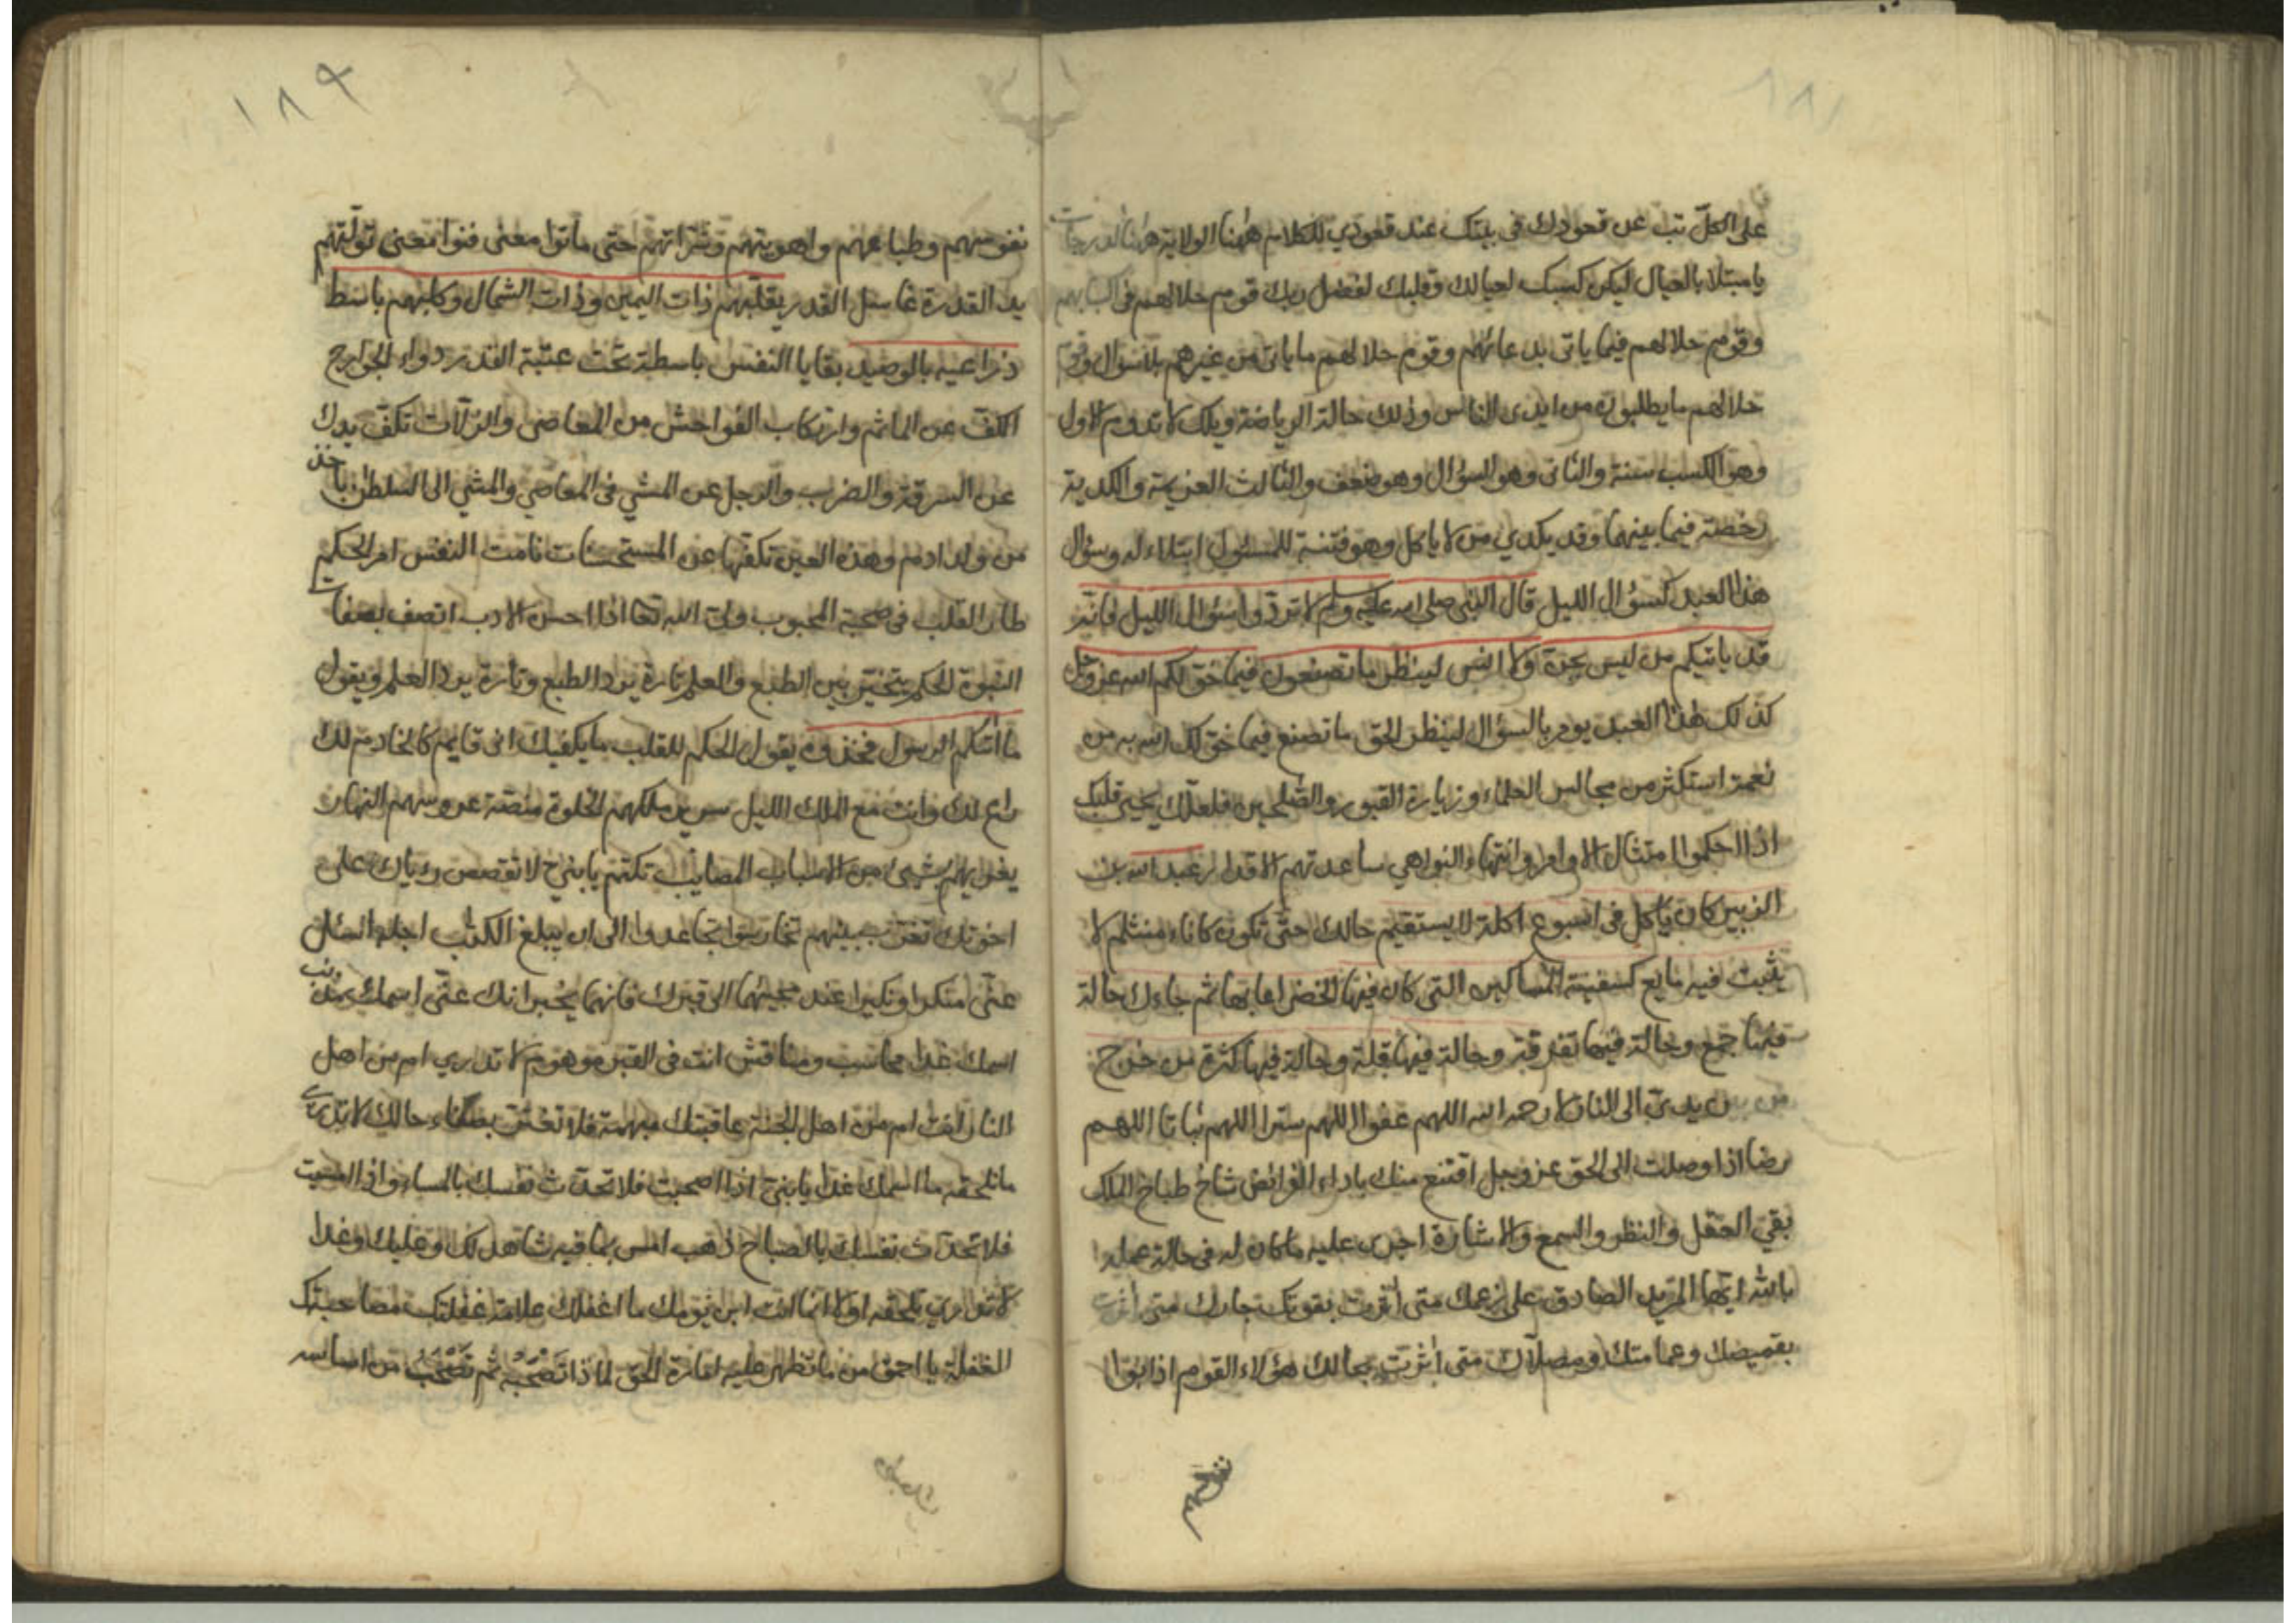 على الكل تب عن قعودك في بيتك عند قعودي للكلام ههنا الولاية ههنا الدرجات
يا مبتلا بالعيال ليكن كسبك لعيالك وقلبك لفضل ربك قوم حلالهم في اكسابهم
وقوم حلالهم فيما ياتي بدعائهم وقوم حلالهم ما ياتي من غيرهم بلا سؤال وقوم
حلالهم ما يطلبون من ايدى الناس وذلك حالة الرياضة ويلك لا تدوم الاول
وهو الكسب سنة والثاني وهو السؤال وهو ضعف والثالث العزيمة والكدية
رخصة فيما بينهما وقد يكدي من لا ياكل وهو فتنة للمسئول ابتلاء له وسؤال
هذا العبد كسؤال الليل قال النبي صلى الله عليه وسلم لا تردوا سؤال الليل فانه
قد ياتيكم من ليس بجن ولا انس لينظر ما تصنعون فيما خولكم الله عز وجل
كذلك هذا العبد يومر بالسؤال لينظر الحق ما تصنع فيما خولك الله به من
نعمة استكثر من مجالس العلماء وزيارة القبور والصلحين فلعلك يحيى قلبك
اذا احكموا امتثال الاوامر وانتهاء النواهي ساعدتهم الاقدار عبد الله بن
الزبير كان ياكل في اسبوع اكلة لا يستقيم حالك حتى تكون كاناء منثلم لا
يثبت فيه مايع كسفينة المساكين التي كان فيها الخضر اعابها ثم جاءك حالة
فيها جمع وحالة فيها تفرقة وحالة فيها قلة وحالة فيها كثرة من خرج
من بين يدي الى النار لا رحمه الله اللهم عفوا اللهم سترا اللهم ثباتا اللهم
رضا اذا وصلت الى الحق عز وجل اقتنع منك باداء الفرائض شاخ طباخ الملك
بقي العقل والنظر والسمع والاشارة اجرى عليه ما كان له في حالة عمله
بالله ايها المريد الصادق على زعمك متى اثرت بقوتك جارك متى اثرت
بقميصك وعمامتك ومصلاك متى اثرت بمالك هؤلاء القوم اذابوا
نفوسهم
١٨٩
نفوسهم وطباعهم واهويتهم وشراتهم حتى ماتوا معنى فنوا معنى تولتهم
يد القدرة غاسل القدر يقلبهم ذات اليمين وذات الشمال وكلبهم باسط
ذراعيه بالوصيد بقايا النفس باسطة تحت عتبة القدر دواء الجوارح
الكف عن الماثم وارتكاب الفواحش من المعاصي والزلات تكف يدك
عن السرقة والضرب والرجل عن المشي في المعاصي والمشي الى السلطن باحد
من ولد ادم وهذه العين تكفها عن المستحسنات نامت النفس امر الحكيم
طار القلب في صحبة المحبوب ولي الله تعا اذا احسن الادب اتصف بصفات
النبوة الحكم يتخير بين الطبع والعلم تارة يرد الطبع وتارة يرد العلم ويقول
ما اتىكم الرسول فخذوه يقول الحكم للقلب ما يكفيك اني قايم كالخادم لك
راع لك وانت مع الملك الليل سرير ملكهم الخلوة منصة عروسهم النهار
يغرايهم بشيئ من الاسباب المصايب تكتم يا بني لا تقصص رؤياك على
اخوتك تغرب بينهم تخارسوا تجاعدوا الى ان يبلغ الكتاب اجله السئل
عني منكرا ونكيرا عند مجيئهما الى قبرك فانهما يخبرانك عني اسمك مذنب
اسمك غدا محاسب ومناقش انت في القبر موهوم لا تدري ام من اهل
النار انت ام من اهل الجنة عاقبتك مبهمة فلا تغتر بصفاء حالك لا تدري
ما تلحقه ما اسمك غدا يا بني اذا اصبحت فلا تحدث نفسك بالمساء واذا امسيت
فلا تحدث نفسك بالصباح ذهب امس بما فيه شاهد لك وعليك وغدا
لا تدري تلحقه اولا انما انت ابن يومك ما اغفلك علامة غفلتك مصاحبتك
الغفلة يا احمق من ما تظهر عليه امارة الحق لماذا تصحبه ثم تصحب من اساسه